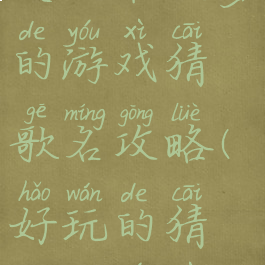 de yóu xì cāi
的游戏猜
gē míng gōng lüè
歌名攻略(
hǎo wán de cāi
好玩的猜